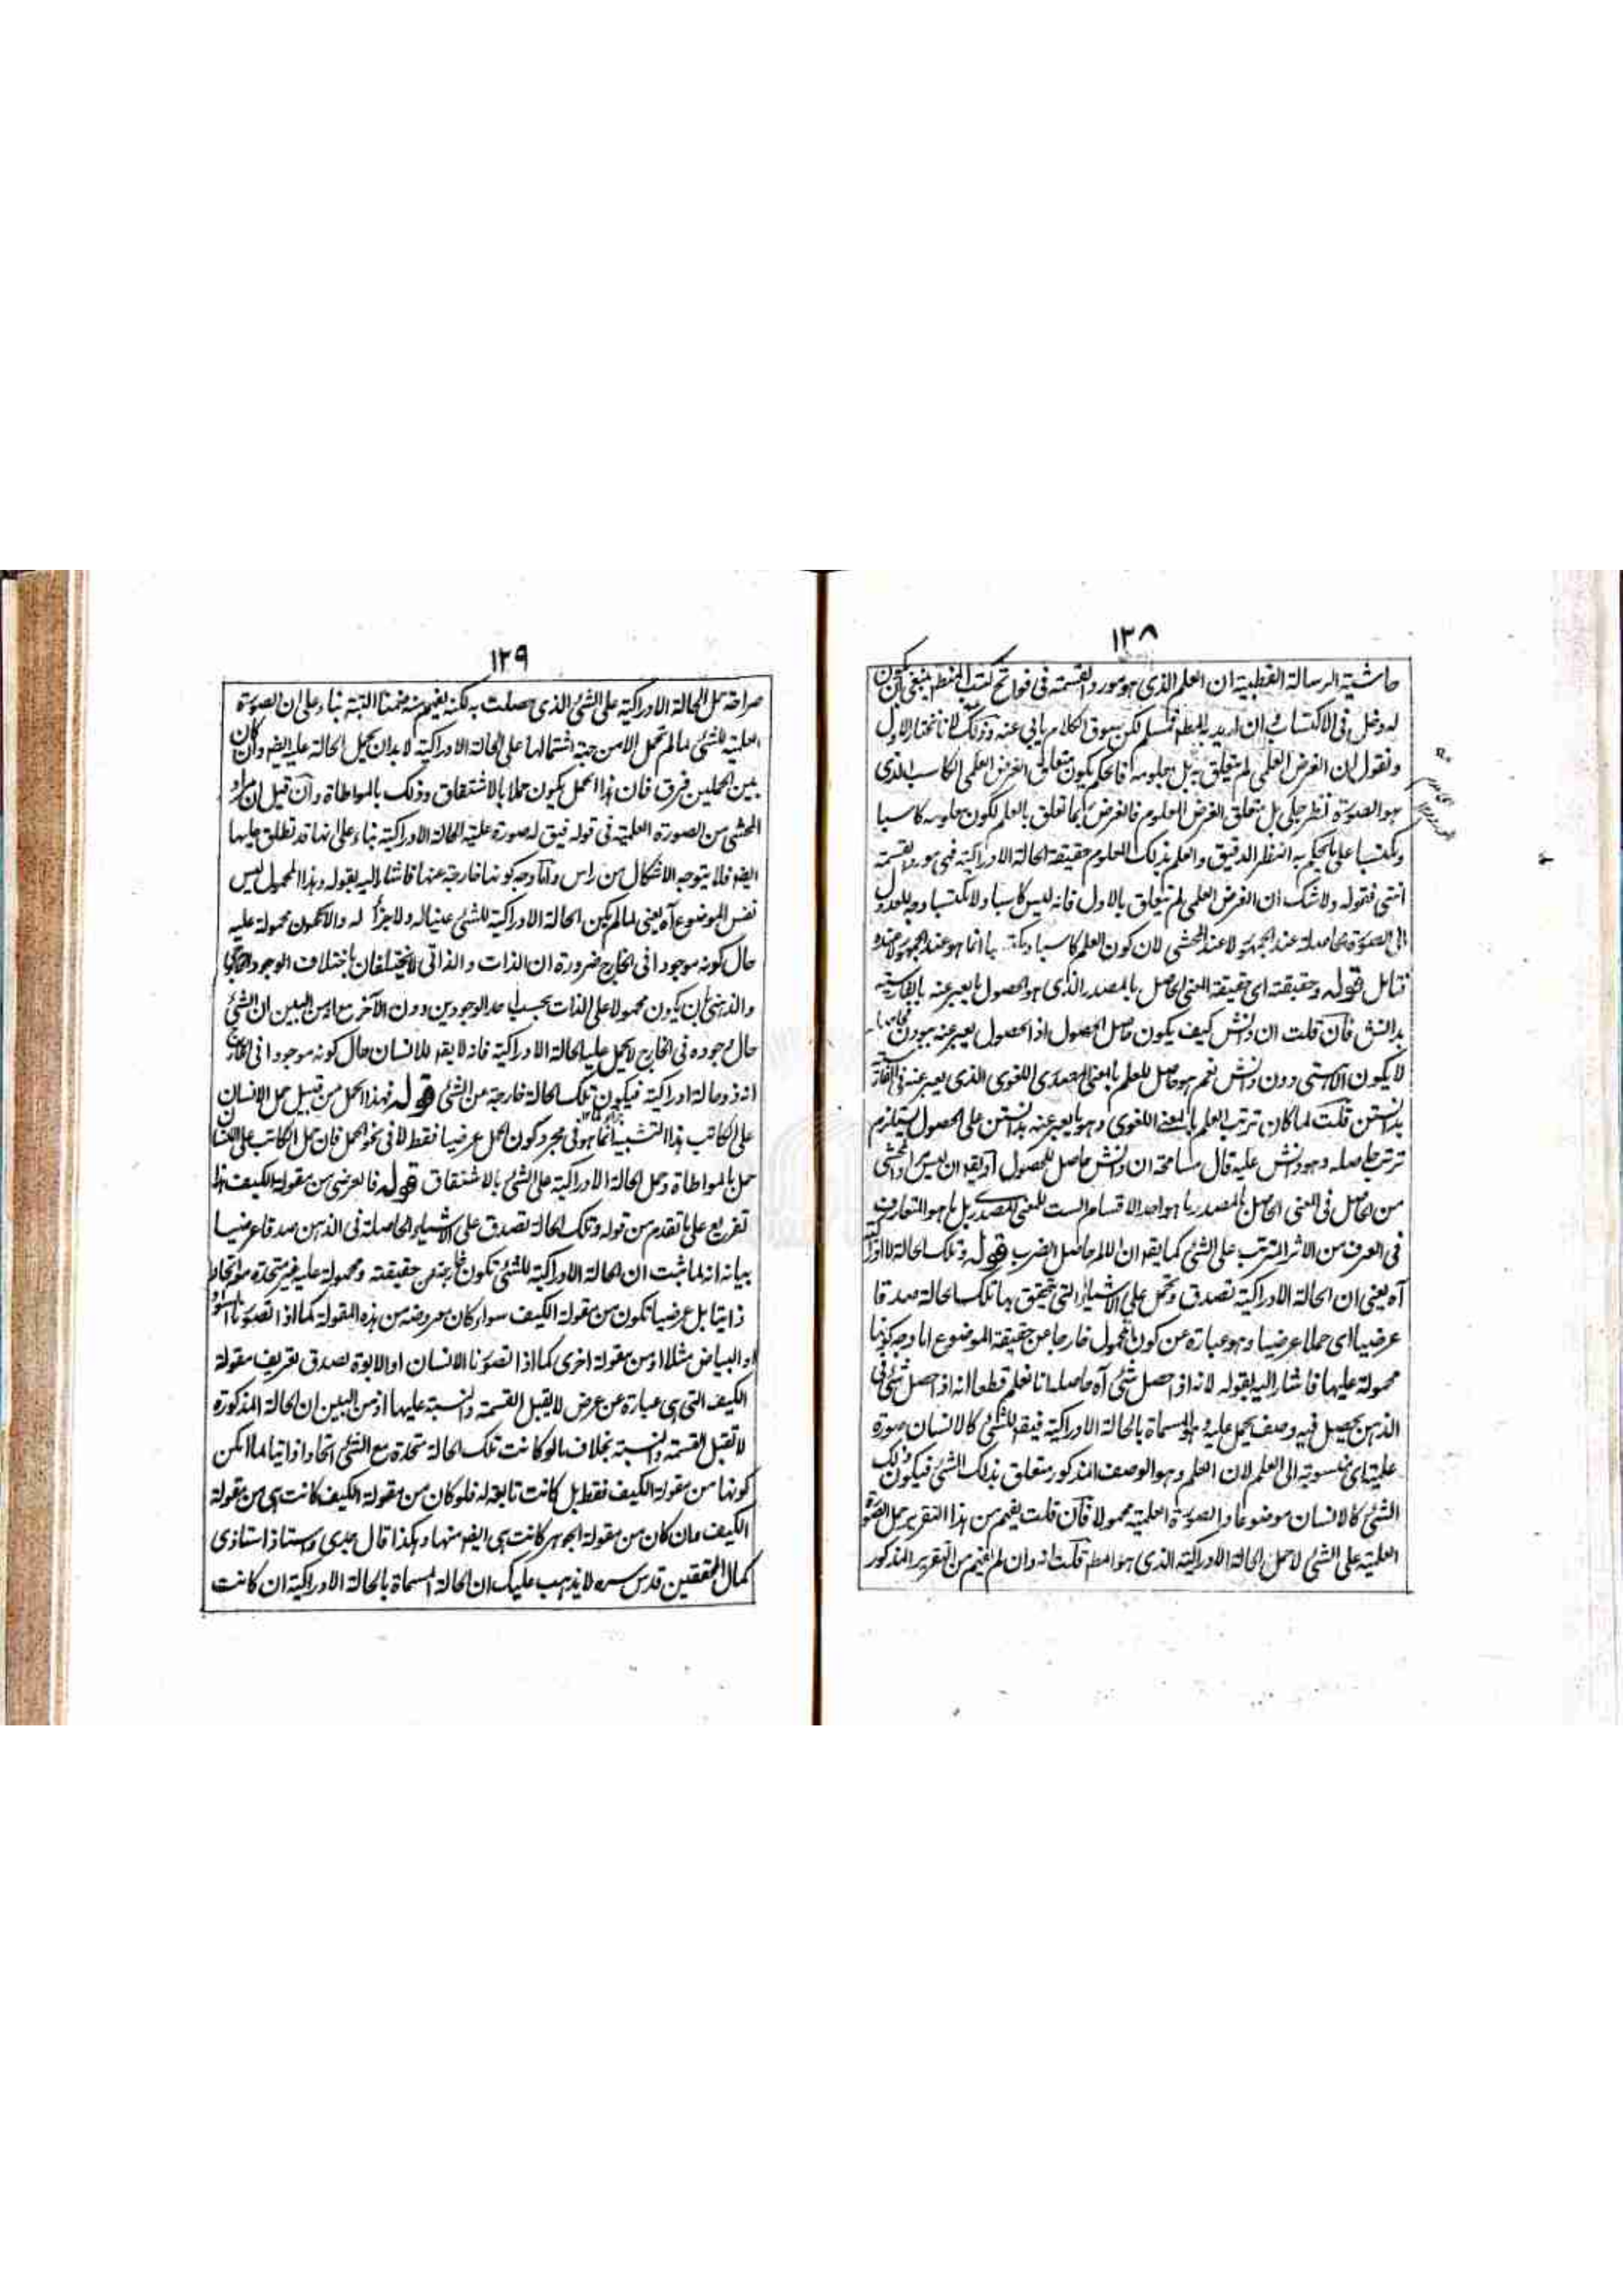 ١٣٨
حاشية الرسالة القطبية ان العلم الذى هو مورد القسمة فى فواتح كتب المنطق ينبغى ان يكون
له دخل فى الاكتساب ان اريد به المطلق فمسلم لكن سوق الكلام يابى عنه وذلك لانا نختار الاول
ونقول ان الغرض العلمى لم يتعلق به بل بمعلومه فالحكم يكون متعلق الغرض العلمى الكاسب الذى
هو الصورة نظر جلى بل متعلق الغرض المعلوم فالغرض انما تعلق بالعلم لكون معلومه كاسبا
ومكتسبا على ما يحكم به النظر الدقيق والعلم بذلك المعلوم حقيقة الحالة الادراكية فهى مورد القسمة
انتهى فقوله ولا شك ان الغرض العلمى لم يتعلق بالاول فانه ليس كاسبا ولا مكتسبا وجه للعدول
الى الصورة الحاصلة عند الجمهور لا عند المحشى لان كون العلم كاسبا ومكتسبا انما هو عند الجمهور لا عنده
فتامل قوله وحقيقته اى حقيقة المعنى الحاصل بالمصدر الذى هو الحصول ما يعبر عنه بالفارسية
بدانش فان قلت ان دانش كيف يكون حاصل الحصول اذ الحصول يعبر عنه ببودن
لا يكون الا هستى دون دانش نعم هو حاصل للعلم بالمعنى المصدرى اللغوى الذى يعبر عنه فى الفارسية
بدانستن قلت لما كان ترتب العلم بالمعنى اللغوى وهو ما يعبر عنه بدانستن على الحصول يستلزم
ترتب حاصله وهو دانش عليه قال مسامحة ان دانش حاصل للحصول او يقه ان ليس مراد المحشى
من الحاصل فى المعنى الحاصل بالمصدر ما هو احد الاقسام الست للمعنى المصدرى بل ما هو المتعارف
فى العرف من الاثر المترتب على الشئ كما يقه ان الالم حاصل الضرب قوله وتلك الحالة الادراكية
آه يعنى ان الحالة الادراكية تصدق وتحمل على الاشياء التى تتحقق بها تلك الحالة صدقا
عرضيا اى حملا عرضيا وهو عبارة عن كون المحمول خارجا عن حقيقة الموضوع اما وجه كونها
محمولة عليها فاشار اليه بقوله لانه اذا حصل شئ آه حاصله انا نعلم قطعا انه اذا حصل شئ فى
الذهن يحصل فيه وصف يحمل عليه وهو المسماة بالحالة الادراكية فيقه للشئ كالانسان صورة
علمية اى منسوبة الى العلم لان العلم وهو الوصف المذكور متعلق بذلك الشئ فيكون ذلك
الشئ كالانسان موضوعا والصورة العلمية محمولا فان قلت يفهم من هذا التقرير حمل الصورة
العلمية على الشئ لا حمل الحالة الادراكية الذى هو المطه قلت انه وان لم يفهم من التقرير المذكور
١٣٩
صراحة حمل الحالة الادراكية على الشئ الذى حصلت به لكنه يفهم منه ضمنا البتة بناء على ان الصورة
العلمية للشئ لما لم تحمل الا من جهة اشتمالها على الحالة الادراكية لا بد ان يحمل الحالة عليه ايضه وان كان
بين الحملين فرق فان هذا الحمل يكون حملا بالاشتقاق وذلك بالمواطاة وان قيل ان مراد
المحشى من الصورة العلمية فى قوله فيق له صورة علمية الحالة الادراكية بناء على انها قد تطلق عليها
ايضه فلا يتوجه الاشكال من راس واما وجه كونها خارجة عنها فاشار اليه بقوله وهذا المحمول ليس
نفس الموضوع آه يعنى لما لم يكن الحالة الادراكية للشئ عينا له ولا جزأ له والا تكون محمولة عليه
حال كونه موجودا فى الخارج ضرورة ان الذات والذاتى لا يختلفان باختلاف الوجود الخارجى
والذهنى بان يكون محمولا على الذات بحسب احد الوجودين دون الآخر مع انه من البين ان الشئ
حال وجوده فى الخارج لا يحمل عليه الحالة الادراكية فانه لا يقه للانسان حال كونه موجودا فى الخارج
انه ذو حالة ادراكية فيكون تلك الحالة خارجة عن الشئ قوله فهذا الحمل من قبيل حمل الانسان
على الكاتب هذا التشبيه انما هو فى مجرد كون الحمل عرضيا فقط لا فى نحو الحمل فان حمل الكاتب على الانسان
حمل بالمواطاة وحمل الحالة الادراكية على الشئ بالاشتقاق قوله فالعرضى من مقولة الكيف هذا
تفريع على ما تقدم من قوله وتلك الحالة تصدق على الاشياء الحاصلة فى الذهن صدقا عرضيا
بيانه انه لما ثبت ان الحالة الادراكية للشئ تكون خارجة عن حقيقته ومحمولة عليه غير متحدة معه اتحادا
ذاتيا بل عرضيا تكون من مقولة الكيف سواء كان معروضه من هذه المقولة كما اذا تصورنا السواد
او البياض مثلا او من مقولة اخرى كما اذا تصورنا الانسان او الابوة لصدق تعريف مقولة
الكيف التى هى عبارة عن عرض لا يقبل القسمة والنسبة عليها اذ من البين ان الحالة المذكورة
لا تقبل القسمة والنسبة بخلاف ما لو كانت تلك الحالة متحدة مع الشئ اتحادا ذاتيا لما امكن
كونها من مقولة الكيف فقط بل كانت تابعة له فلو كان من مقولة الكيف كانت هى من مقولة
الكيف وان كان من مقولة الجوهر كانت هى ايضه منها وهكذا قال جدى واستاذ استاذى
كمال المحققين قدس سره لا يذهب عليك ان الحالة المسماة بالحالة الادراكية ان كانت